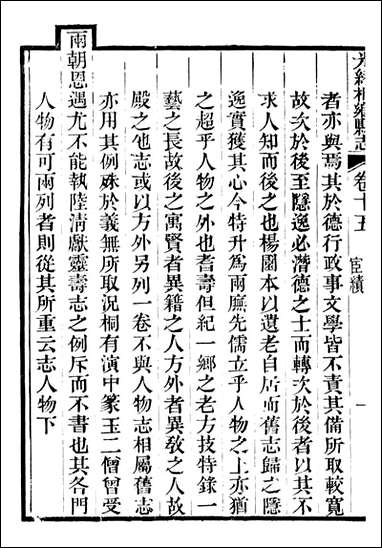 光緒桐鄉縣志 卷十五 宦績 一
者亦與焉其於德行政事文學皆不責其備所取較寬
故次於後至隱逸必潛德之士而轉次於後者以其不
求人知而後之也楊園本以遺老自居而舊志歸之隱
逸實獲其心今特升為兩廡先儒立乎人物之上亦猶
之超乎人物之外也耆壽但紀一鄉之老方技特錄一
藝之長故後之寓賢者異籍之人方外者異敎之人故
殿之他志或以方外另列一卷不與人物志相屬舊志
亦用其例殊於義無所取況桐有演中篆玉二僧曾受
兩朝恩遇尤不能執陸淸獻靈壽志之例斥而不書也其各門
人物有可兩列者則從其所重云志人物下